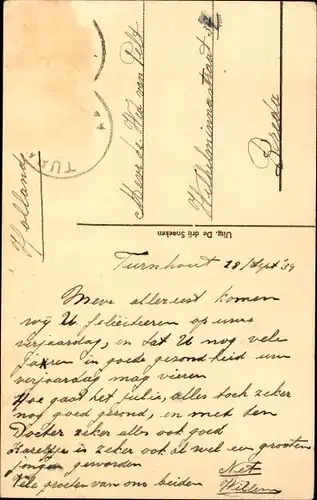 Turnhout 18/Sept '39
Meve allereerst komen
wij U feliciteeren op uwe
verjaardag, en dat U nog vele
jaren in goede gezondheid uw
verjaardag mag vieren
Hoe gaat het jullie, alles toch zeker
nog goed gesond, en met den
Docter zeker alles ook goed
Kareltje is zeker ook al wel een grooten
jongen geworden
Vele groeten van ons beiden
Net
Willem
Uitg. De drij Snoeken
Mevr de Wed van Pelt
Wilhelminastraat
Breda
Holland
TU